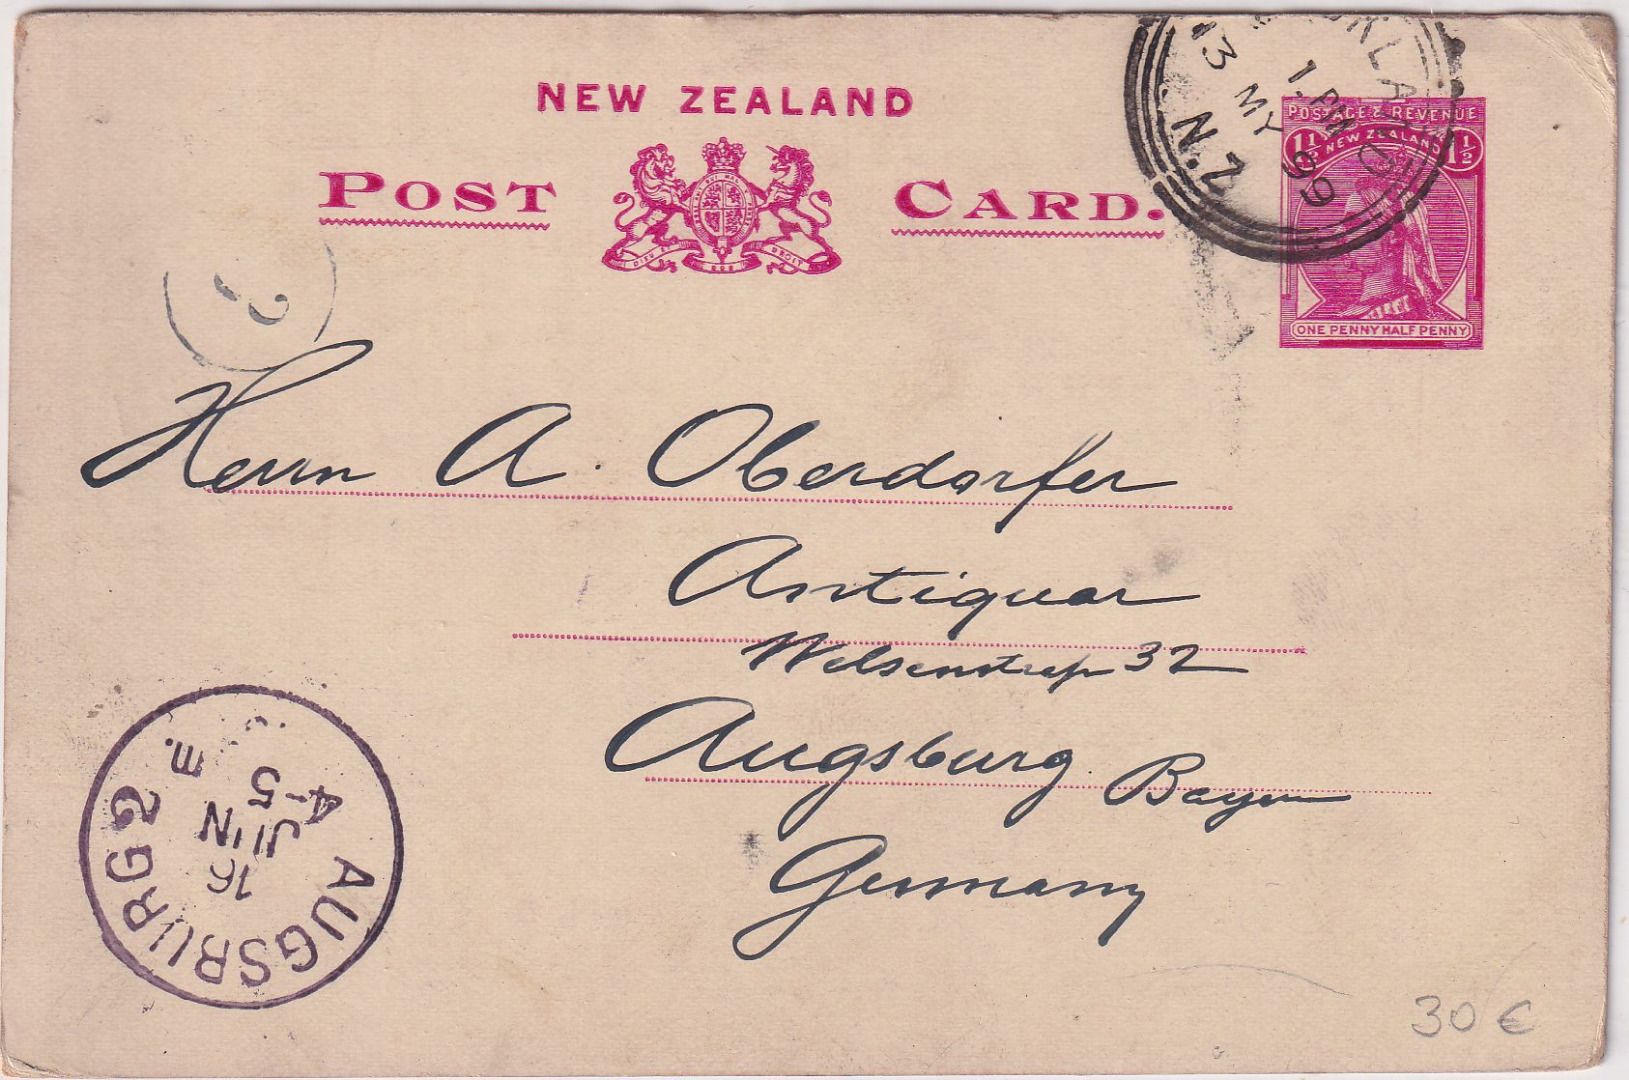 NEW ZEALAND
POST CARD.
DIEU ET MON DROIT
AUCKLAND
1. PM
13 MY 99
N.Z
POSTAGE & REVENUE
NEW ZEALAND
1½ 1½
ONE PENNY HALF PENNY
2
Herrn A. Oberdorfer
Antiquar
32
Augsburg Bayern
Germany
AUGSBURG 2
16
JUN
4-5
30 €